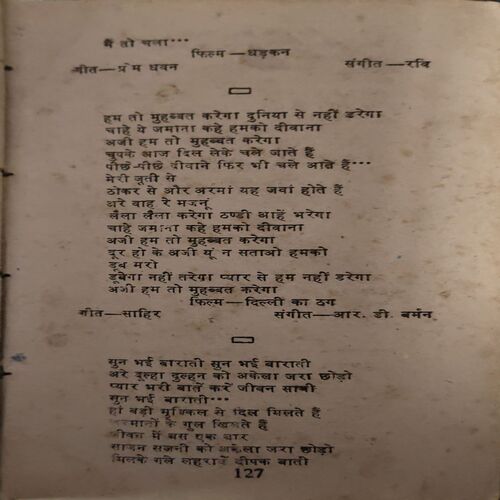 मैं तो चला···
फिल्म—धड़कन
गीत—प्रेम धवन संगीत—रवि
हम तो मुहब्बत करेगा दुनिया से नहीं डरेगा
चाहे ये जमाना कहे हमको दीवाना
अजी हम तो मुहब्बत करेगा
चुपके आज दिल लेके चले जाते हैं
पीछे-पीछे दीवाने फिर भी चले आते हैं···
मेरी जूती से
ठोकर से और अरमां यह जवां होते हैं
अरे वाह रे मजनूं
लैला लैला करेगा ठण्डी आहें भरेगा
चाहे जमाना कहे हमको दीवाना
अजी हम तो मुहब्बत करेगा
दूर हो के अजी यूं न सताओ हमको
डूब मरो
डूबेगा नहीं तरेगा प्यार से हम नहीं डरेगा
अजी हम तो मुहब्बत करेगा
फिल्म—दिल्ली का ठग
गीत—साहिर संगीत—आर. डी. बर्मन
सुन भई बाराती सुन भई बाराती
अरे दूल्हा दुल्हन को अकेला जरा छोड़ो
प्यार भरी बातें करें जीवन साथी
सुन भई बाराती···
हो बड़ी मुश्किल से दिल मिलते हैं
अरमानों के गुल खिलते हैं
जीवन में बस एक बार
साजन सजनी को अकेला जरा छोड़ो
मिलके गले लहरायें दीपक बाती
127